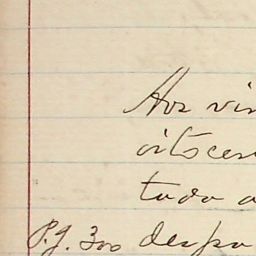 Aos vin
oitocen
tado a
P.g. 300 despa